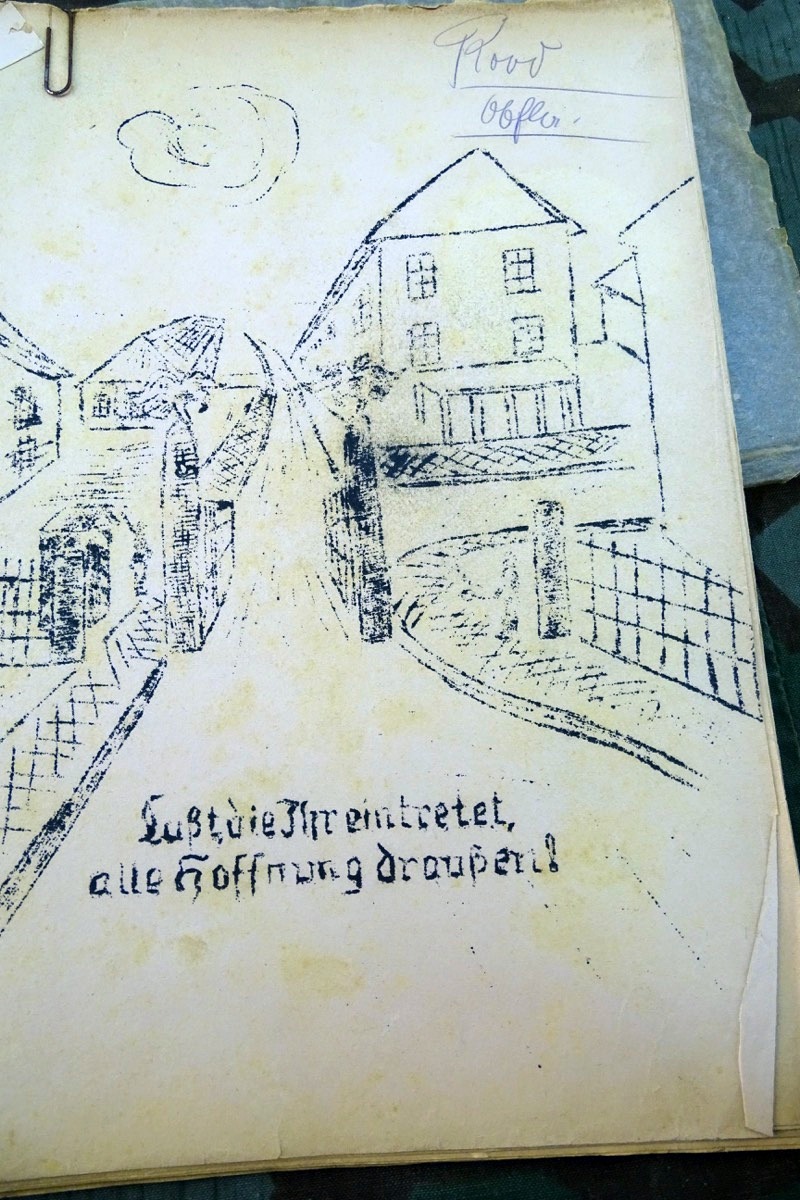 Laßt, die Ihr eintretet,
alle Hoffnung draußen!